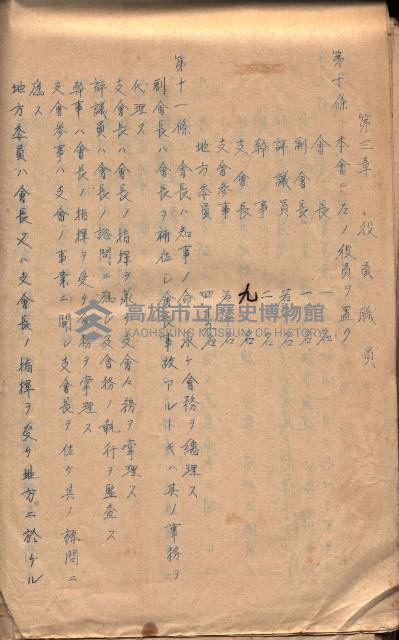 第三章　役員職員
第十條　本會ニ左ノ役員ヲ置ク
會長　一名
副會長　一名
評議員　若　名
幹事　二名
支會長　九名
支會參事　若　名
地方委員　四　名
第十一條　會長ハ知事ノ命　承ケ會務ヲ總理ス
副會長ハ會長ヲ補佐シ會　事故アルトキハ其ノ事務ヲ
代理ス
支會長ハ會長ノ指揮ヲ承　支會ノ務ヲ掌理ス
評議員ハ會長ノ諮問ニ應　及會務ノ執行ヲ監査ス
幹事ハ會長ノ指揮ヲ受ケ　務ヲ掌理ス
支會參事ハ支會ノ事業ニ關シ支會長ヲ佐ケ其ノ諮問ニ
應ス
地方委員ハ會長又ハ支會長ノ指揮ヲ受ケ地方ニ於ケル
高雄市立歷史博物館
KAOHSIUNG MUSEUM OF HISTORY